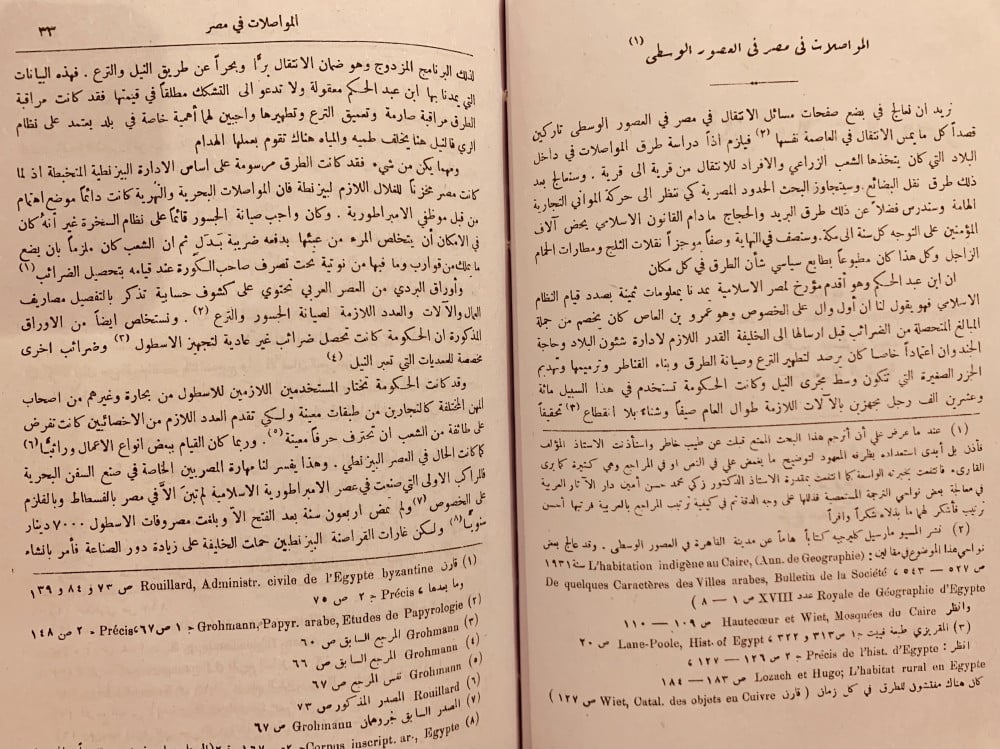 المواصلات فى مصر فى العصور الوسطى (١)
نريد ان نعالج في بضع صفحات مسائل الانتقال في مصر في العصور الوسطى تاركين
قصداً كل ما يمس الانتقال في العاصمة نفسها (٢) فيلزم اذاً دراسة طرق المواصلات في داخل
البلاد التي كان يتخذها الشعب الزراعي والافراد للانتقال من قرية الى قرية . وسنعالج بعد
ذلك طرق نقل البضائع. وسيتجاوز البحث الحدود المصرية كي ننظر الى حركة الموانى التجارية
الهامة وسندرس فضلاً عن ذلك طرق البريد والحجاج ما دام القانون الاسلامي يحض آلاف
المؤمنين على التوجه كل سنة الى مكة. وسنصف في النهاية وصفاً موجزاً نقلات الثلج ومطارات الحمام
الزاجل وكل هذا كان مطبوعاً بطابع سياسي شأن الطرق في كل مكان
ان ابن عبد الحكم وهو أقدم مؤرخ لمصر الاسلامية يمدنا بمعلومات ثمينة بصدد قيام النظام
الاسلامي فهو يقول لنا ان أول وال على الخصوص وهو عمرو بن العاص كان يخصم من جملة
المبالغ المتحصلة من الضرائب قبل ارسالها الى الخليفة القدر اللازم لادارة شئون البلاد وحاجة
الجند وان اعتماداً خاصا كان يرصد لتطهير الترع وصيانة الطرق وبناء القناطر وترميمها وتهديم
الجزر الصغيرة التي تتكون وسط مجرى النيل وكانت الحكومة تستخدم في هذا السبيل مائة
وعشرين الف رجل مجهزين بالآلات اللازمة طوال العام صيفاً وشتاء بلا انقطاع (٣) تحقيقاً
(١) عند ما عرض علي أن أترجم هذا البحث الممتع قبلت عن طيب خاطر واستأذنت الاستاذ المؤلف
فأذن بل أبدى استعداده بظرفه المعهود لتوضيح ما يغمض علي في النص او في المراجع وهي كثيرة كما يرى
القارىء. فانتفعت بخبرته الواسعة كما انتفعت بمقدرة الاستاذ الدكتور زكي محمد حسن أمين دار الآثار العربية
في معالجة بعض نواحي الترجمة المستعصية فذللها على وجه الدقة ثم في كيفية ترتيب المراجع بالعربية فرتبها أحسن
ترتيب فأشكر لهما ما بذلاه شكراً وافراً
(٢) نشر المسيو مارسيل كليرجيه كتاباً هاماً عن مدينة القاهرة في العصور الوسطى . وقد عالج بعض
نواحي هذا الموضوع في مقالين: L'habitation indigène au Caire, (Ann. de Geographie) سنة ١٩٣١
ص ٥٢٧ — ٥٤٣ ، De quelques Caractères des Villes arabes, Bulletin de la Société
Royale de Géographie d'Egypte عدد XVIII ص ١ — ٨ )
وانظر Hautecœur et Wiet, Mosquées du Caire ص ١٠٩ — ١١٠
(٣) المقريزي طبعة فييت ج ١ ص ٣١٣ و ٣٢٢ ، Lane-Poole, Hist. of Egypt ص ٢٠
انظر : Précis de l'hist. d'Egypte ج ٢ ص ١٢٦ — ١٢٧ ،
Lozach et Hugo; L'habitat rural en Egypte ص ١٨٣ — ١٨٤
كان هناك مفتشون للطرق في كل زمان ( قارن Wiet, Catal. des objets en Cuivre ص ١٢٧ )
المواصلات في مصر
٣٣
لذلك البرنامج المزدوج وهو ضمان الانتقال براً وبحراً عن طريق النيل والترع . فهذه البيانات
التي يمدنا بها ابن عبد الحكم معقولة ولا تدعو الى التشكك مطلقاً في قيمتها فقد كانت مراقبة
الطرق مراقبة صارمة وتعميق الترع وتطهيرها واجبين لهما أهمية خاصة في بلد يعتمد على نظام
الري فالنيل هنا يخلف طميه والمياه هناك تقوم بعملها الهدام
ومهما يكن من شيء فقد كانت الطرق مرسومة على اساس الادارة البيزنطية المنحبطة اذ لما
كانت مصر مخزناً للغلال اللازم لبيزنطة فان المواصلات البحرية والنهرية كانت دائماً موضع اهتمام
من قبل موظفي الامبراطورية . وكان واجب صيانة الجسور قائماً على نظام السخرة غير أنه كان
في الامكان أن يتخلص المرء من عبئها بدفعه ضريبة بدل ثم ان الشعب كان ملزماً بان يضع
ما يملك من قوارب وما فيها من نوتية تحت تصرف صاحب الكورة عند قيامه بتحصيل الضرائب (١)
وأوراق البردي من العصر العربي تحتوي على كشوف حسابية تذكر بالتفصيل مصاريف
العمال والآلات والعدد اللازمة لصيانة الجسور والترع (٢) . ونستخلص ايضاً من الاوراق
المذكورة ان الحكومة كانت تحصل ضرائب غير عادية لتجهيز الاسطول (٣) وضرائب اخرى
مخصصة للمعديات التي تعبر النيل (٤)
وقد كانت الحكومة تختار المستخدمين اللازمين للاسطول من بحارة وغيرهم من اصحاب
المهن المختلفة كالنجارين من طبقات معينة ولكي تقدم العدد اللازم من الاخصائيين كانت تفرض
على طائفة من الشعب ان تحترف حرفاً معينة (٥) . وربما كان القيام ببعض انواع الاعمال وراثياً (٦)
كما كانت الحال في العصر البيزنطي . وهذا يفسر لنا مهارة المصريين الخاصة في صنع السفن البحرية
فالمراكب الاولى التي صنعت في عصر الامبراطورية الاسلامية لم تبن الاّ في مصر بالفسطاط وبالقلزم
على الخصوص (٧) ولم تمض اربعون سنة بعد الفتح الاّ وبلغت مصروفات الاسطول ٧٠٠٠ دينار
سنوياً (٨) ولكن غارات القراصنة البيزنطيين حملت الخليفة على زيادة دور الصناعة فأمر بانشاء
(١) قارن Rouillard, Administr. civile de l'Egypte byzantine ص ٧٣ و ٨٤ و ١٣٩
وما بعدها ، Précis ج ٢ ص ٧٥
(٢) Grohmann, Papyr. arabe, Etudes de Papyrologie ج ١ ص ٦٧، Précis ج ٢ ص ١٤٨
(٣) Grohmann المرجع السابق ص ٦٠
(٤) Grohmann المرجع السابق ص ٦٦
(٥) Grohmann نفس المرجع ص ٦٧
(٦) Rouillard المصدر المذكور ص ٧٣
(٧) المصدر السابق جروهمان Grohmann ص ٦٧
(٨) Corpus inscript. ar., Egypte